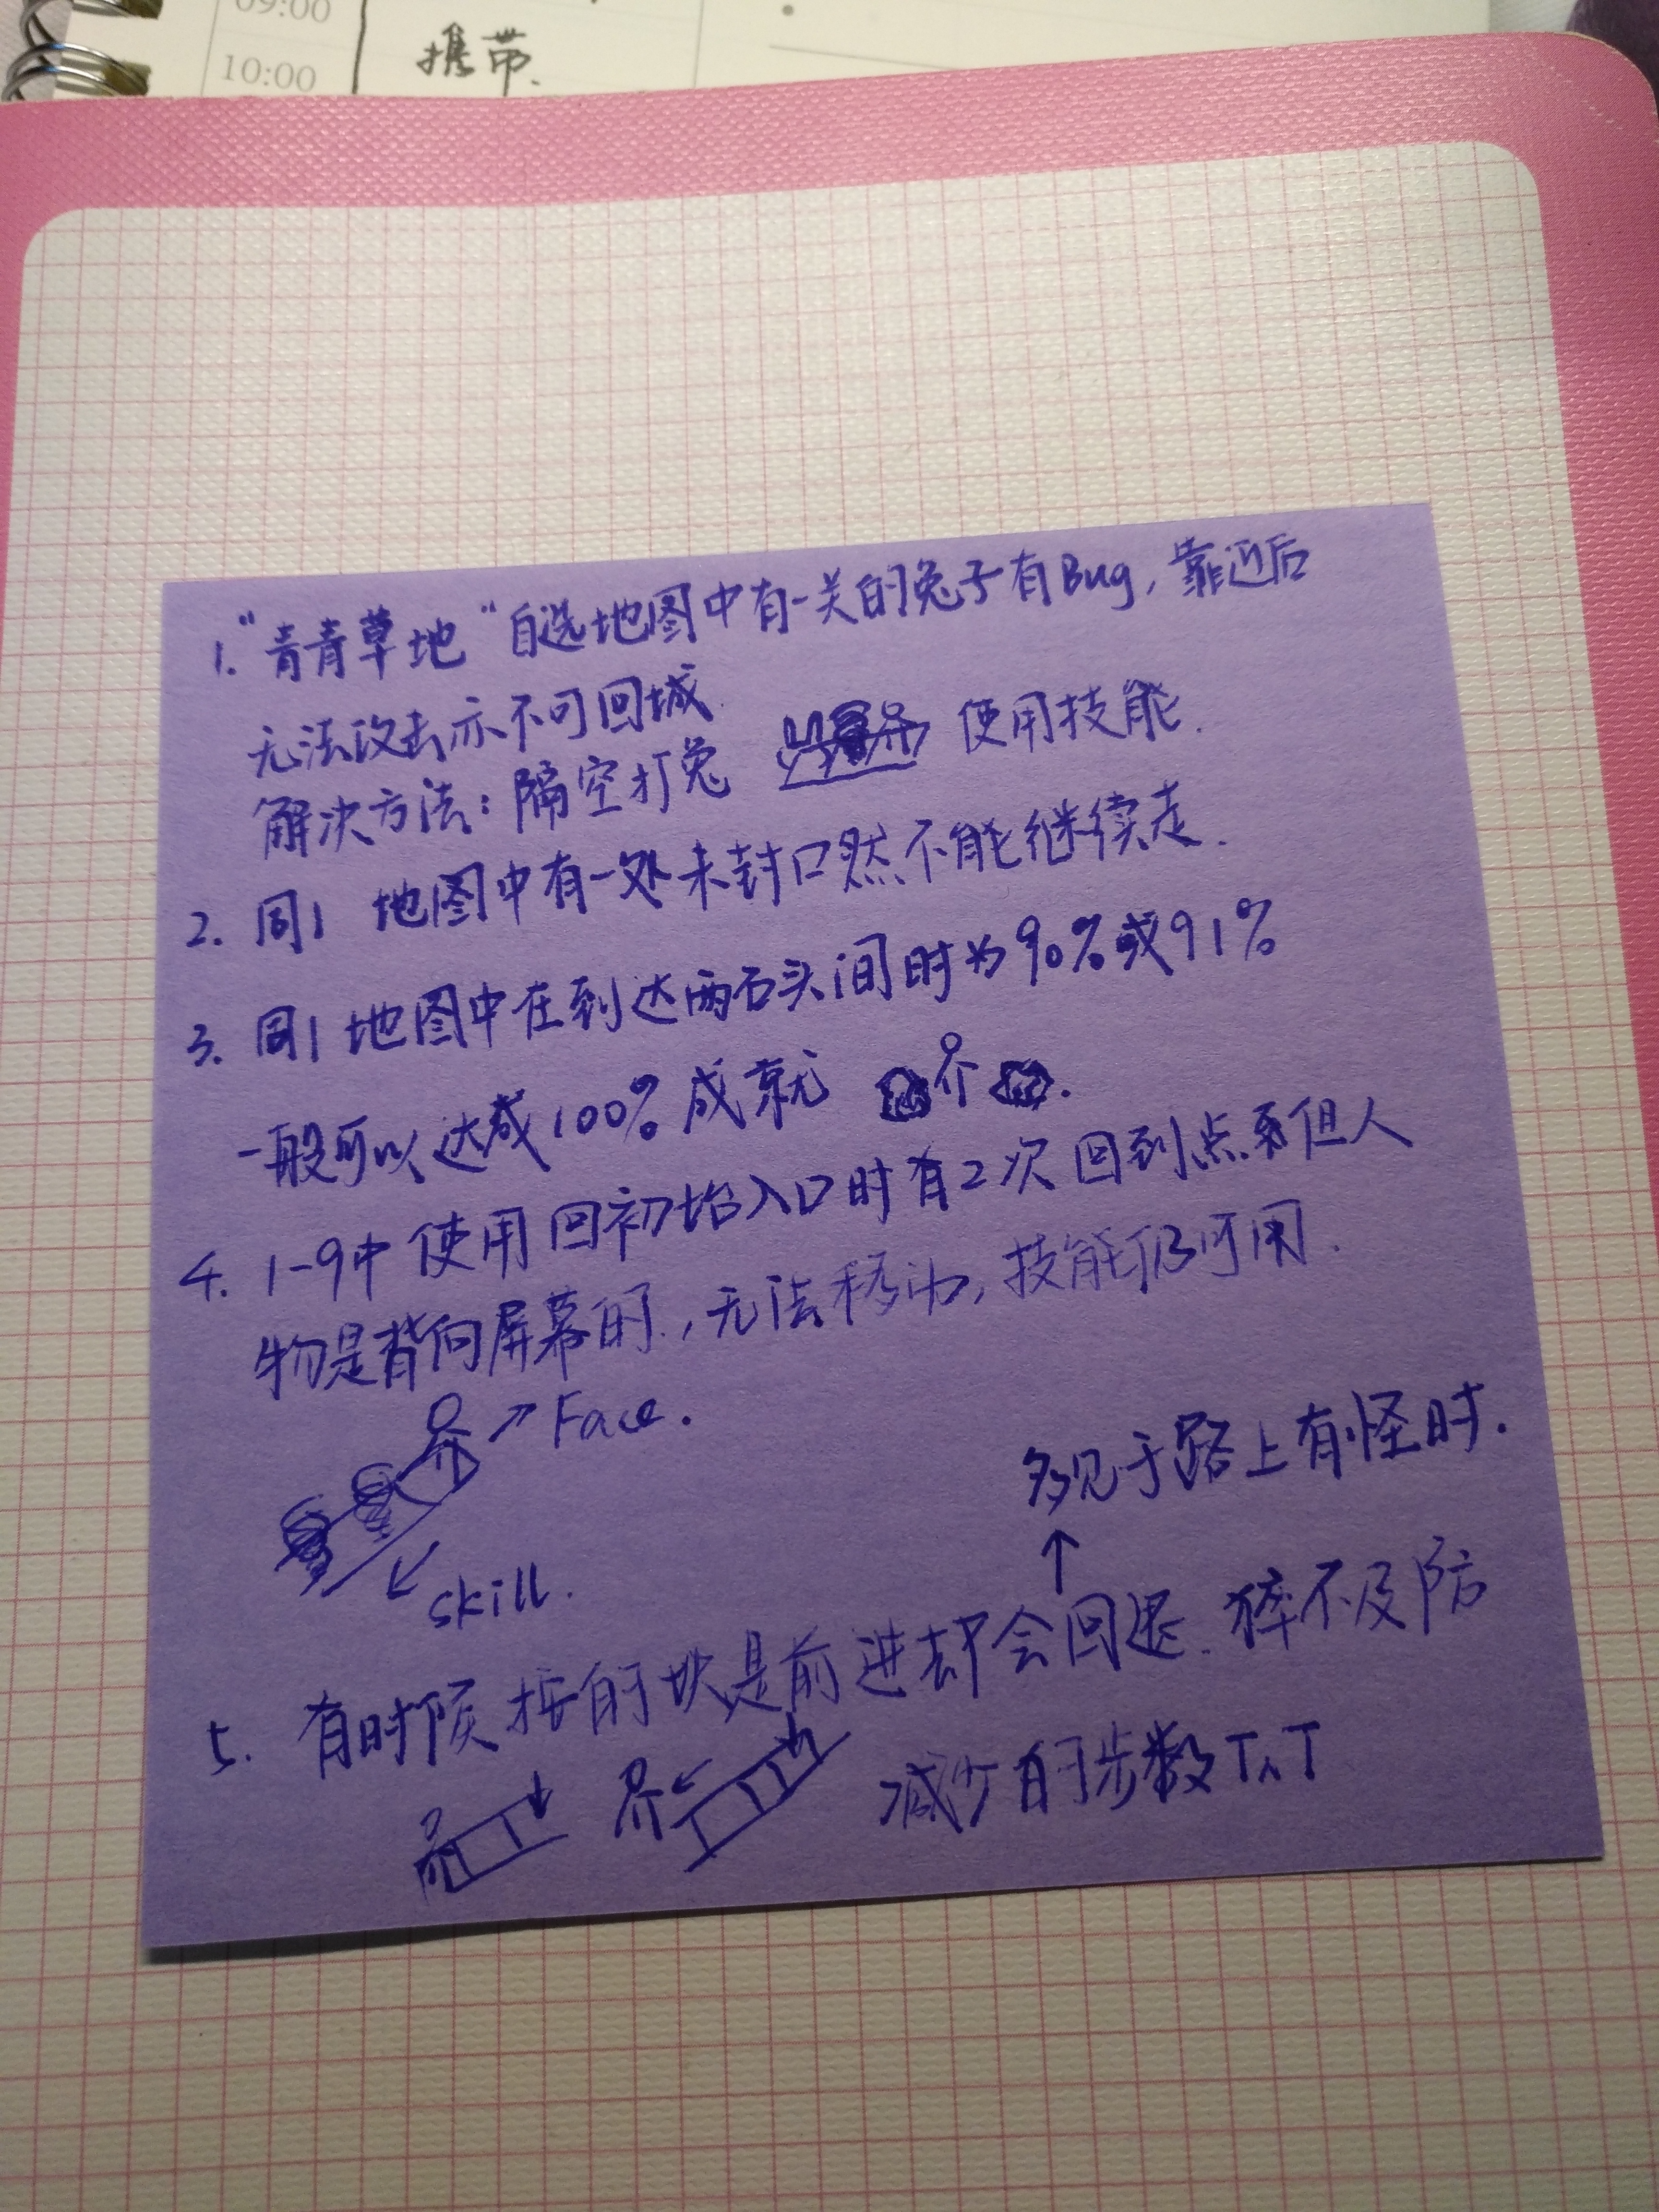 09:00
10:00
携带.
1."青青草地"自选地图中有一关的兔子有Bug,靠近后
无法攻击亦不可回城.
解决方法:隔空打兔 使用技能.
2. 同1 地图中有一处未封口然不能继续走.
3. 同1地图中在到达两石头间时为90%或91%
一般可以达成100%成就
4. 1-9中使用回初始入口时有2次回到点系但人
物是背向屏幕的,无法移动,技能仍可用.
→Face.
多见于路上有怪时.
skill.
5. 有时候按的块是前进却会回退.猝不及防
减少的步数T^T